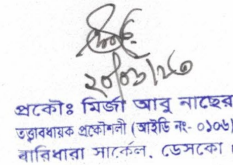 ২০/০৩/২৩
প্রকৌঃ মির্জা আবু নাছের
তত্ত্বাবধায়ক প্রকৌশলী (আইডি নং- ০১০৬)
বারিধারা সার্কেল, ডেসকো।